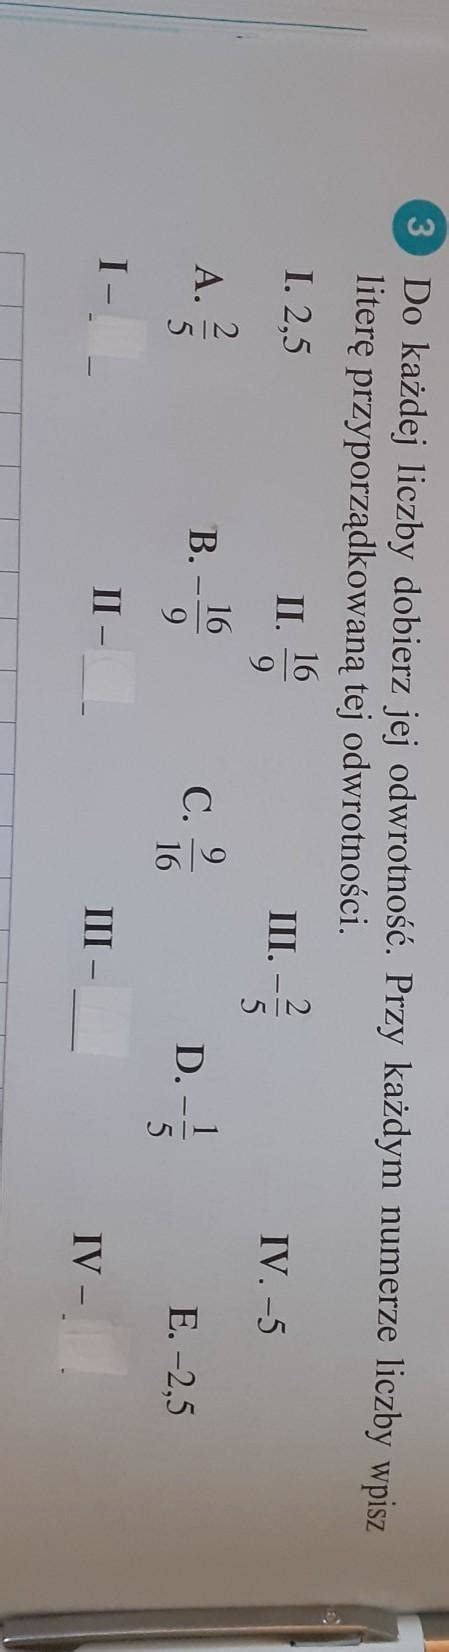 3 Do każdej liczby dobierz jej odwrotność. Przy każdym numerze liczby wpisz
literę przyporządkowaną tej odwrotności.
I. 2,5 II. 16/9 III. -2/5 IV. -5
A. 2/5 B. -16/9 C. 9/16 D. -1/5 E. -2,5
I – II – III – IV –